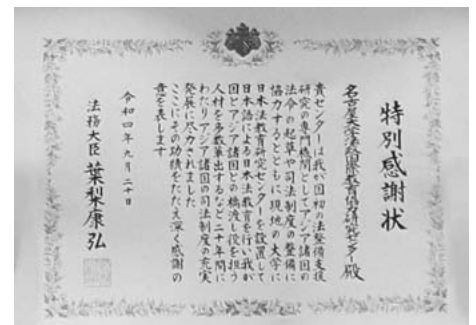 特別感謝状
名古屋大学法政国際教育協力研究センター殿
貴センターは我が国初の法整備支援
研究の専門機関としてアジア諸国の
法令の起草や司法制度の整備に
協力するとともに現地の大学に
日本法教育研究センターを設置して
日本語による日本法教育を行い我が
国とアジア諸国との橋渡し役を担う
人材を多数輩出するなど二十年間に
わたりアジア諸国の司法制度の充実
発展に尽力されました
ここにその功績をたたえ深く感謝の
意を表します
令和四年九月二十日
法務大臣 葉梨康弘